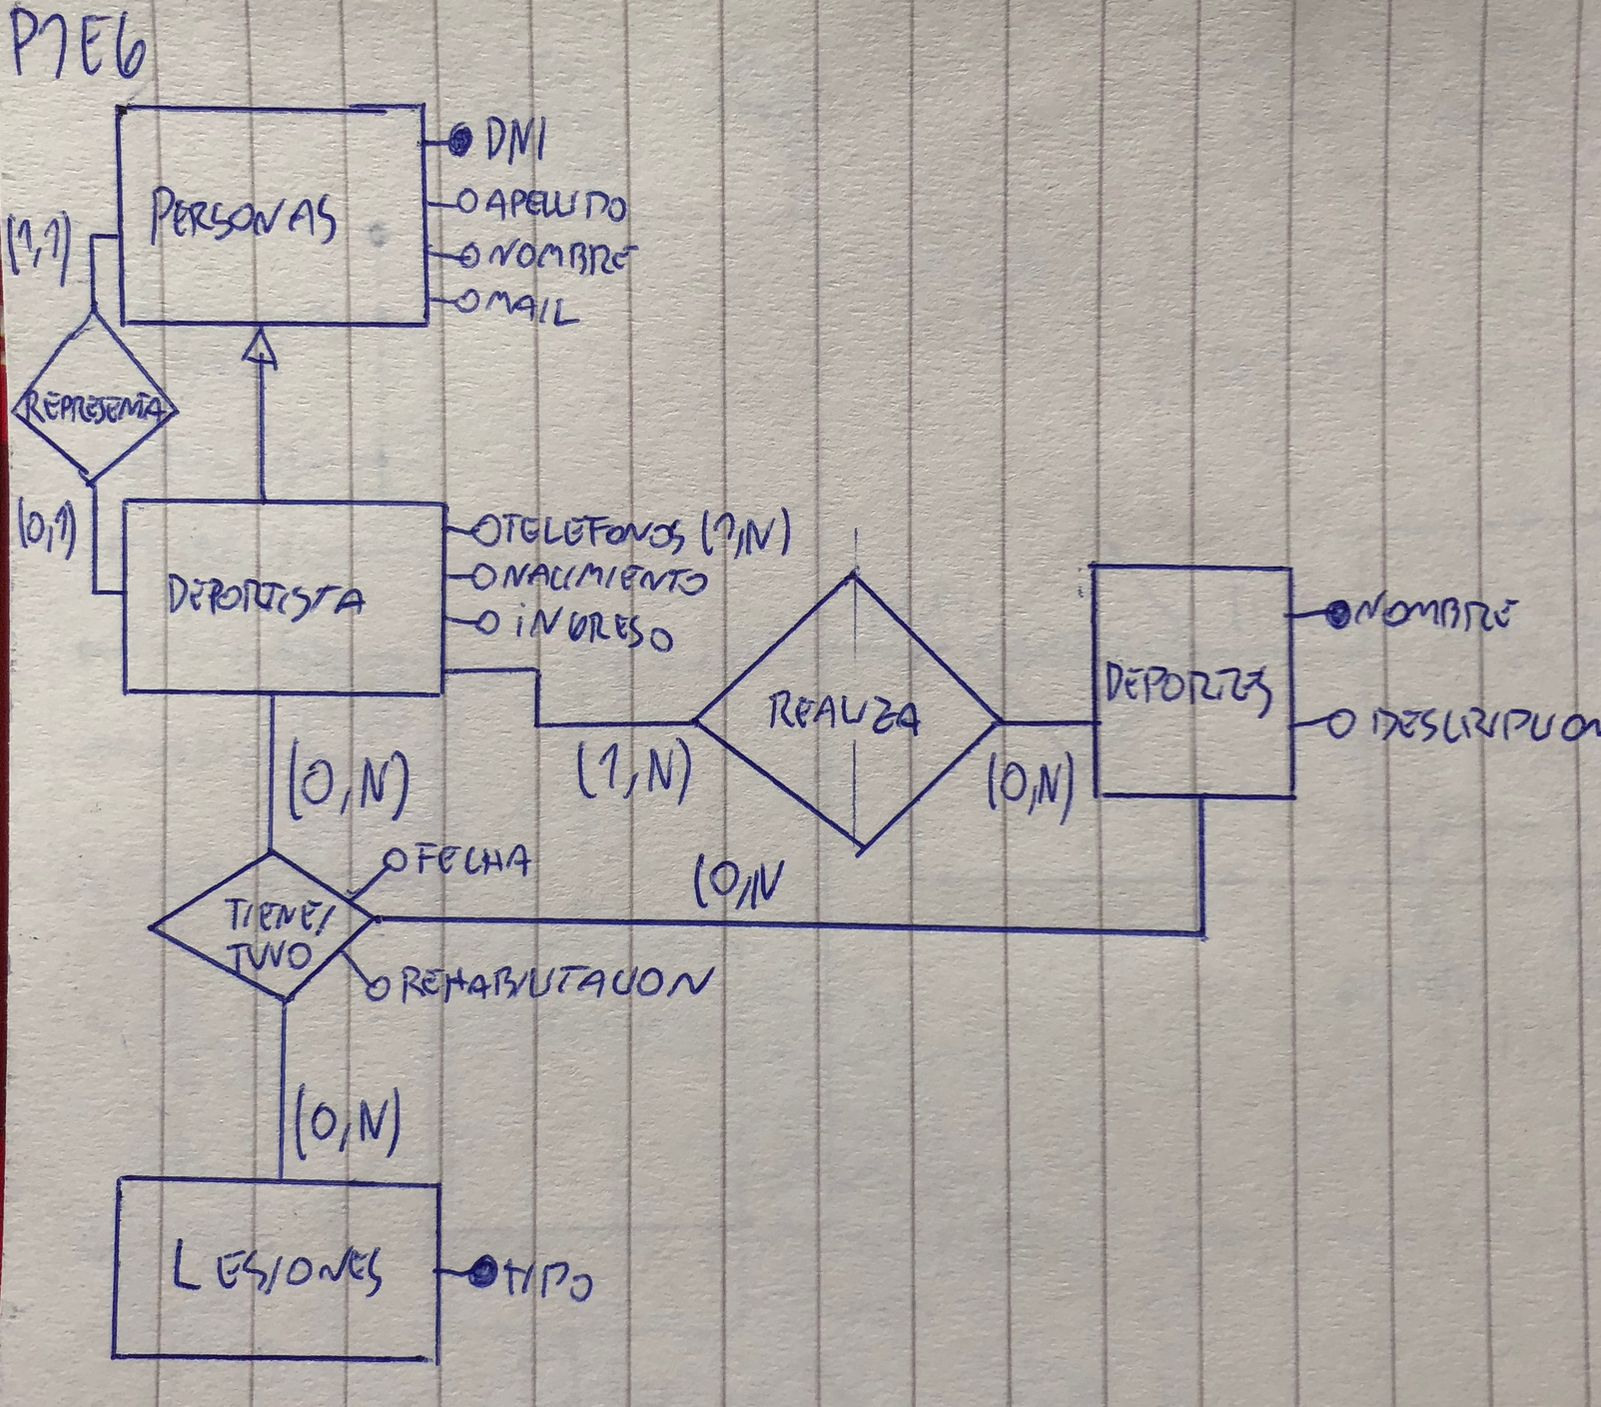 P1E6
PERSONAS
DNI
APELLIDO
NOMBRE
MAIL
(1,1)
REPRESENTA
(0,1)
DEPORTISTA
TELEFONOS (1,N)
NACIMIENTO
INGRESO
REALIZA
DEPORTES
NOMBRE
DESCRIPCION
(0,N)
(1,N)
(0,N)
FECHA
(0,N
TIENE/
TUVO
REHABILITACION
(0,N)
LESIONES
TIPO